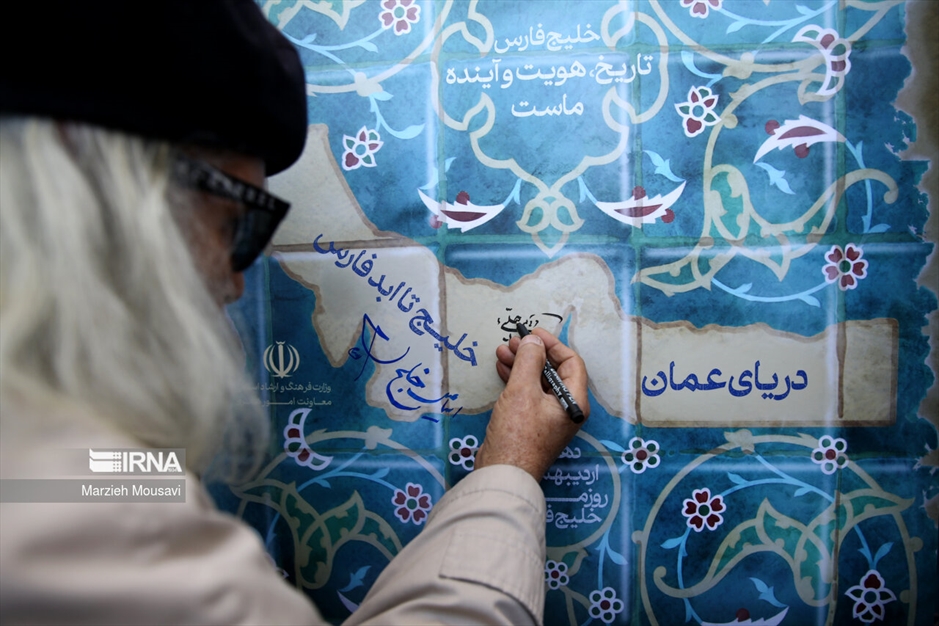 خلیج فارس
تاریخ، هویت و آینده
ماست
خلیج تا ابد فارس
دریای عمان
وزارت فرهنگ و ارشاد اسلا
معاونت امور
دهم
اردیبهش
روز م
خلیج ف
IRNA
Marzieh Mousavi